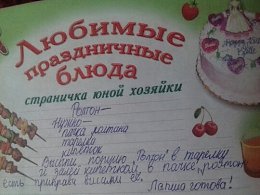 Любимые
праздничные
блюда
страничка юной хозяйки
Ролтон-
Нужно-
пачка ролтона
тарелка
кипяток
Высыпи порцию "Ролтон" в тарелку
и залей кипятком в пачке, ролтон
есть приправа высыпи её.
Лапша готова!